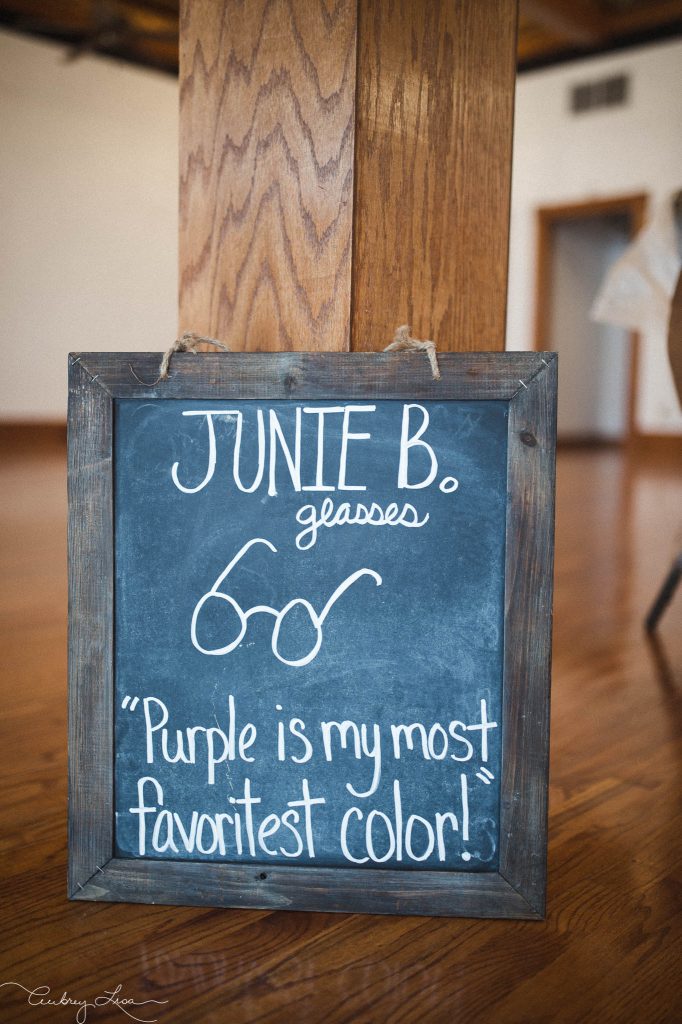 JUNIE B.
glasses
"Purple is my most
favoritest color!"
Aubrey Lisa